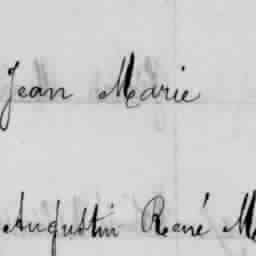 Jean Marie
Augustin René M